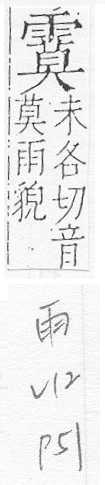 未各切音
莫雨貌
雨
V12
P51